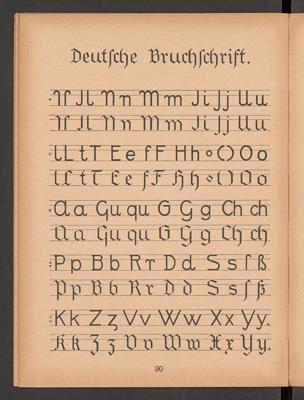 Deutsche Bruchschrift.
Nn Mm Ji Jj Uu
Nn Mm Ji Jj Uu
lL tT Ee fF Hh Oo
lL tT Ee fF Hh Oo
Aa Qu qu G Gg Ch ch
Aa Qu qu G Gg Ch ch
Pp Bb Rr Dd Ssſß
Pp Bb Rr Dd Ssſß
Kk Zʒ Vv Ww Xx Yy.
Kk Zʒ Vv Ww Xx Yy.
90